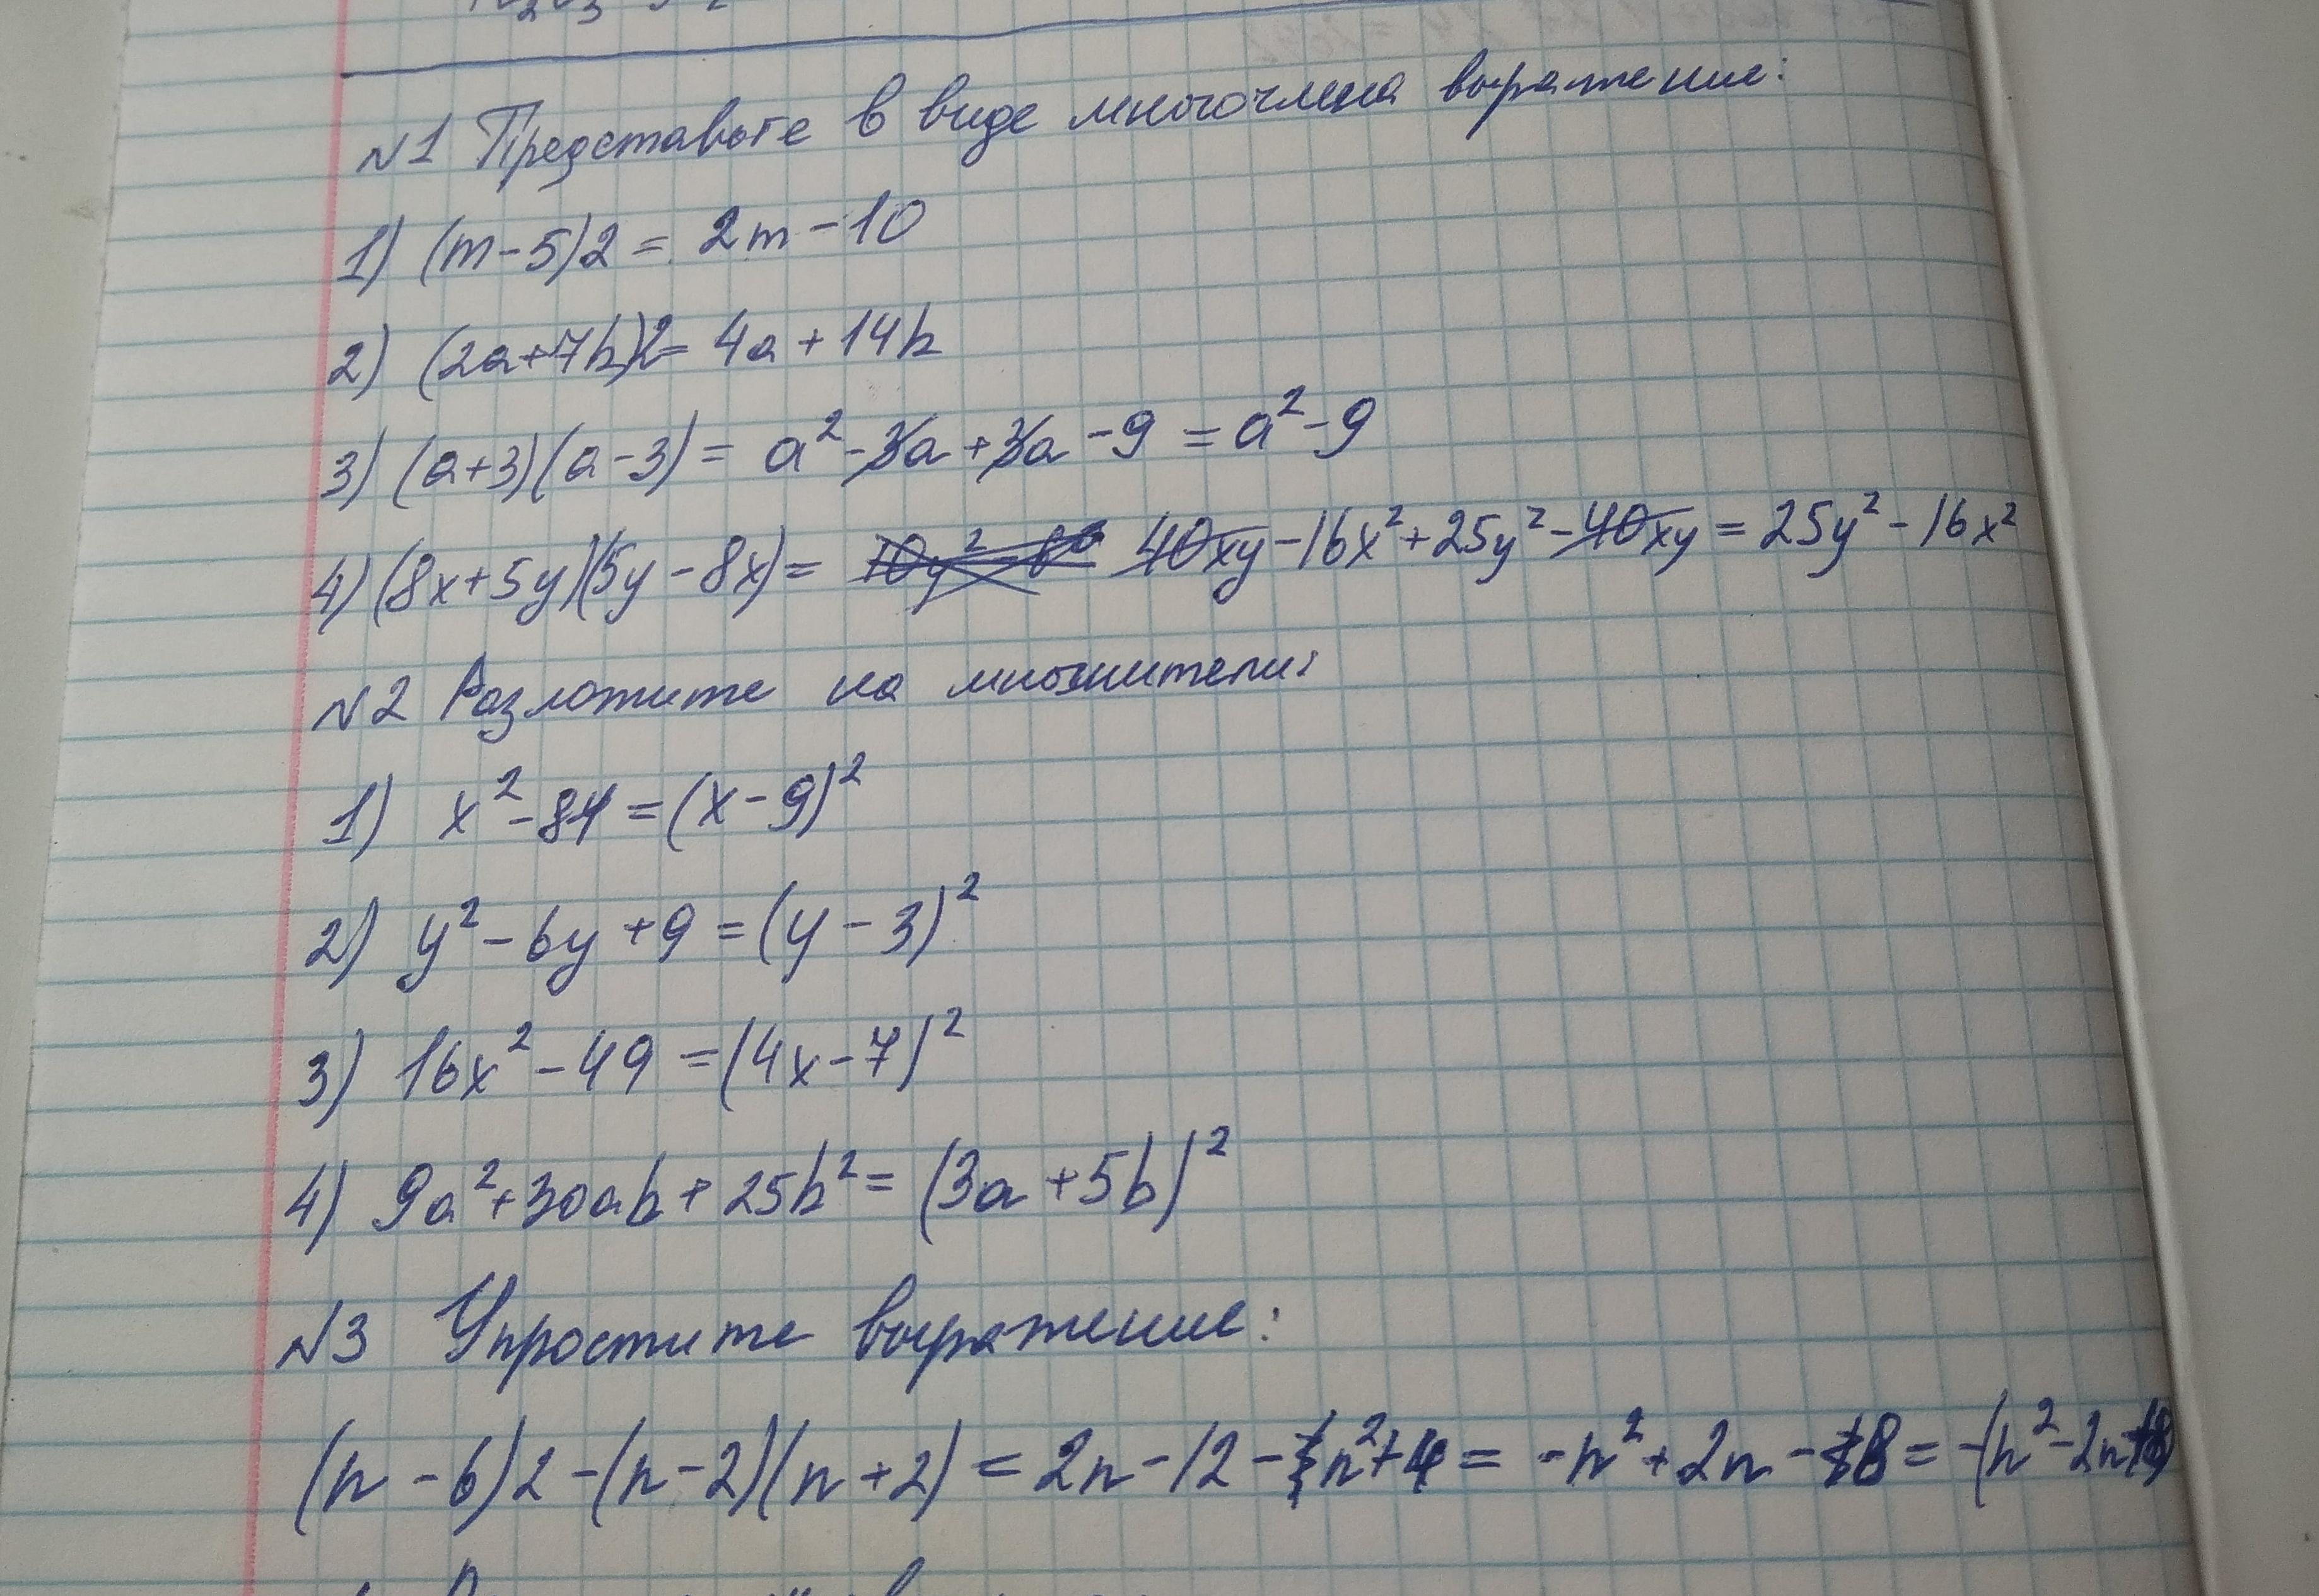 №1 Представьте в виде многочлена выражение:
1) (m-5)2 = 2m-10
2) (2a+7b)2= 4a+14b
3) (a+3)(a-3) = a²-3a+3a-9 = a²-9
4) (8x+5y)(5y-8x) = 40xy-16x²+25y²-40xy = 25y²-16x²
№2 Разложите на множители:
1) x²-81 = (x-9)²
2) y²-6y+9 = (y-3)²
3) 16x²-49 = (4x-7)²
4) 9a²+30ab+25b² = (3a+5b)²
№3 Упростите выражение:
(n-6)2-(n-2)(n+2) = 2n-12-n²+4 = -n²+2n-8 = -(n²-2n+8)